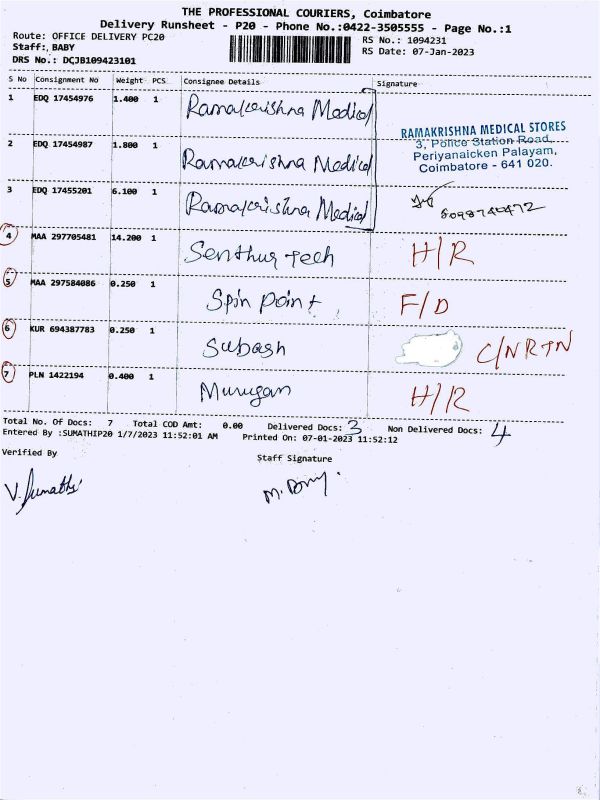 THE PROFESSIONAL COURIERS, Coimbatore
Delivery Runsheet - P20 - Phone No.:0422-3505555 - Page No.:1
Route: OFFICE DELIVERY PC20
RS No.: 1094231
Staff: BABY
RS Date: 07-Jan-2023
DRS No.: DCJB109423101
S No Consignment No Weight PCS Consignee Details Signature
1 EDQ 17454976 1.400 1 Ramakrishna Medical
RAMAKRISHNA MEDICAL STORES
3, Police Station Road,
Periyanaicken Palayam,
Coimbatore - 641 020.
2 EDQ 17454987 1.800 1 Ramakrishna Medical
3 EDQ 17455201 6.100 1 Ramakrishna Medical
4 MAA 297705481 14.200 1 Senthur Tech H/R
5 MAA 297584086 0.250 1 Spin Point F/D
6 KUR 694387783 0.250 1 Subash C/NRTN
7 PLN 1422194 0.400 1 Murugan H/R
Total No. Of Docs: 7 Total COD Amt: 0.00 Delivered Docs: 3 Non Delivered Docs: 4
Entered By :SUMATHIP20 1/7/2023 11:52:01 AM Printed On: 07-01-2023 11:52:12
Verified By Staff Signature
V. Sumathi